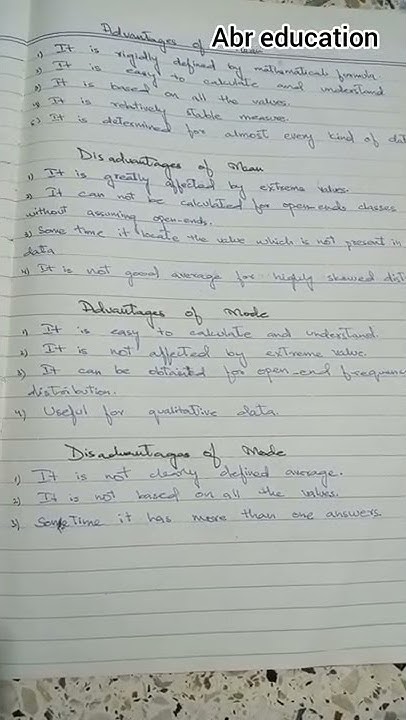 Abr education
Advantages of
1) It is rigidly defined by mathematical formula.
2) It is easy to calculate and understand
3) It is based on all the values.
4) It is relatively stable measure.
5) It is determined for almost every kind of dat
Disadvantages of Mean
1) It is greatly affected by extreme values.
2) It can not be calculated for open-ends classes
without assuming open-ends.
3) Some time it locate the value which is not present in
data
4) It is not good average for highly skewed dist
Advantages of Mode
1) It is easy to calculate and understand.
2) It is not affected by extreme value.
3) It can be obtained for open-end frequenc
distribution.
4) Useful for qualitative data.
Disadvantages of Mode
1) It is not clearly defined average.
2) It is not based on all the values.
3) SomeTime it has more than one answers